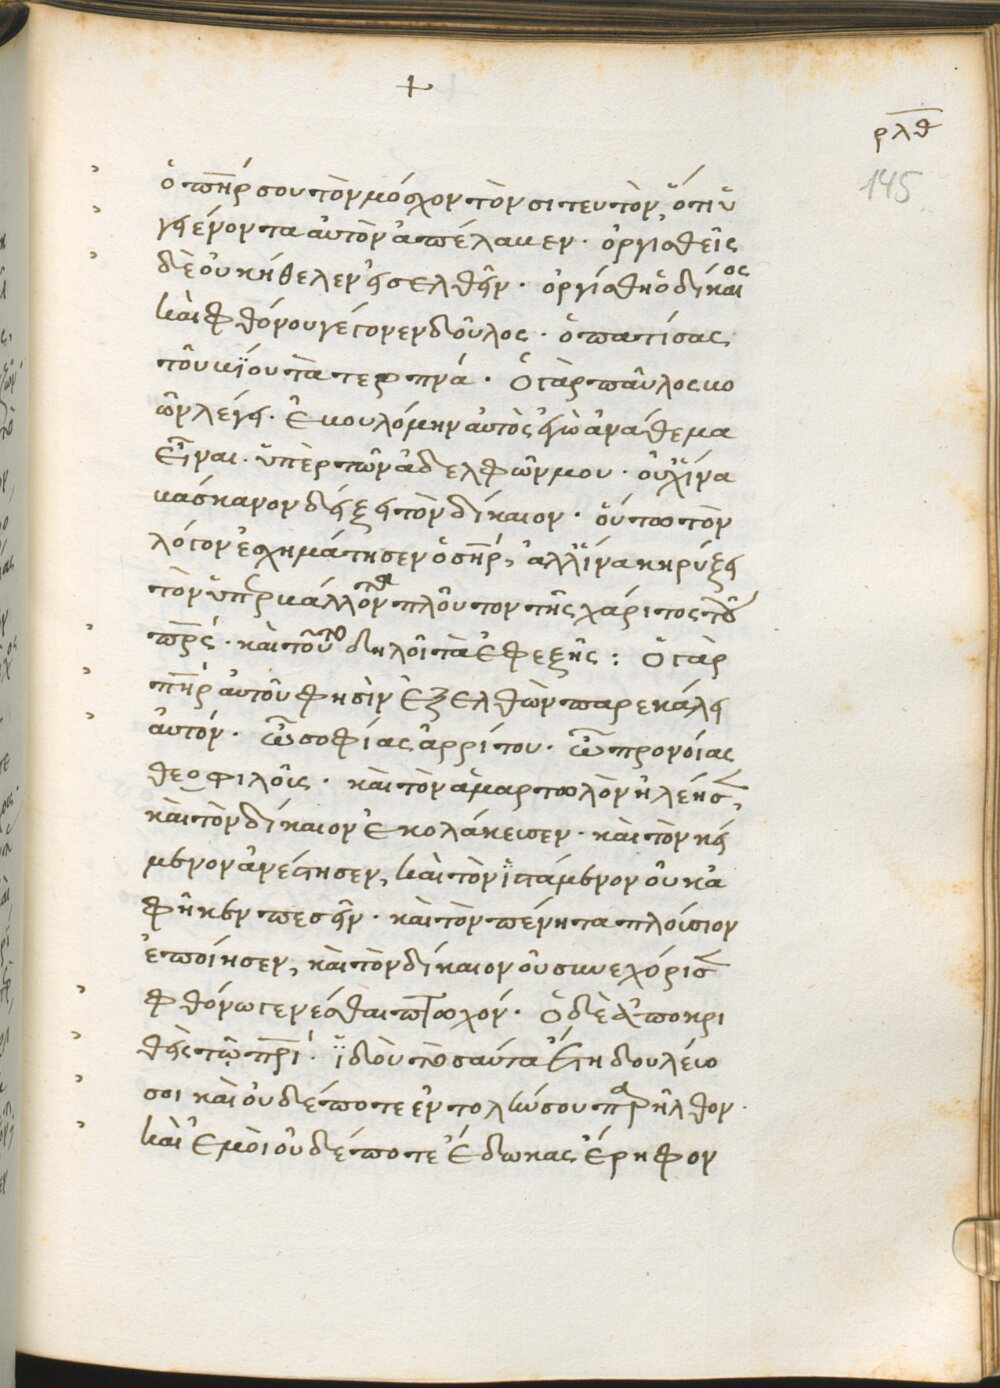 +
ρλθ
145
ὁ πηρ σου τὸν μόσχον τὸν σιτευτὸν, ὅτι ὑ
γιένοντα αὐτὸν ἀπέλαβεν · ὀργισθεὶς
δὲ οὐκ ἤθελεν εἰσελθεῖν · ὀργίσθη ὁ δίκαιος
καὶ φθόνου γέγονεν δοῦλος · ὁ πατίσας
τοῦ βίου τὰ τερπνά · Ὁ γὰρ παῦλος βο
ῶν λέγει · Ἐβουλόμην αὐτὸς ἐγὼ ἀνάθεμα
εἶναι · ὑπὲρ τῶν ἀδελφῶν μου · οὐχ ἵνα
βάσκανον δείξει τὸν δίκαιον · οὕτω τὸν
λόγον ἐσχημάτησεν ὁ σηρ, ἀλλ' ἵνα κηρύξει
τὸν ὑπερβάλλοντα πλοῦτον τῆς χάριτος τοῦ
πρς · καὶ τοῦτο δηλοῖ τὰ ἐφεξῆς : Ὁ γὰρ
πηρ αὐτοῦ φησὶν ἐξελθὼν παρεκάλει
αὐτόν · ὦ σοφίας ἀρρίτου · ὦ προνοίας
θεοφιλοῖς · καὶ τὸν ἁμαρτωλὸν ἠλέησ,
καὶ τὸν δίκαιον ἐκολάκευσεν · καὶ τὸν κεί
μενον ἀνέστησεν, καὶ τὸν ἱστάμενον οὐκ ἀ
φῆκεν πεσεῖν · καὶ τὸν πένητα πλοίσιον
ἐποίησεν, καὶ τὸν δίκαιον οὐ συνεχόρισ
φθόνω γενέσθαι πτωχόν · Ὁ δὲ ἀποκρι
θεὶς τῷ πρὶ · ἰδοὺ τοσαύτα ἔτη δουλεύω
σοι καὶ οὐδέποτε ἐντολήν σου παρῆλθον ·
καὶ ἐμοὶ οὐδέποτε ἔδωκας ἔρηφον